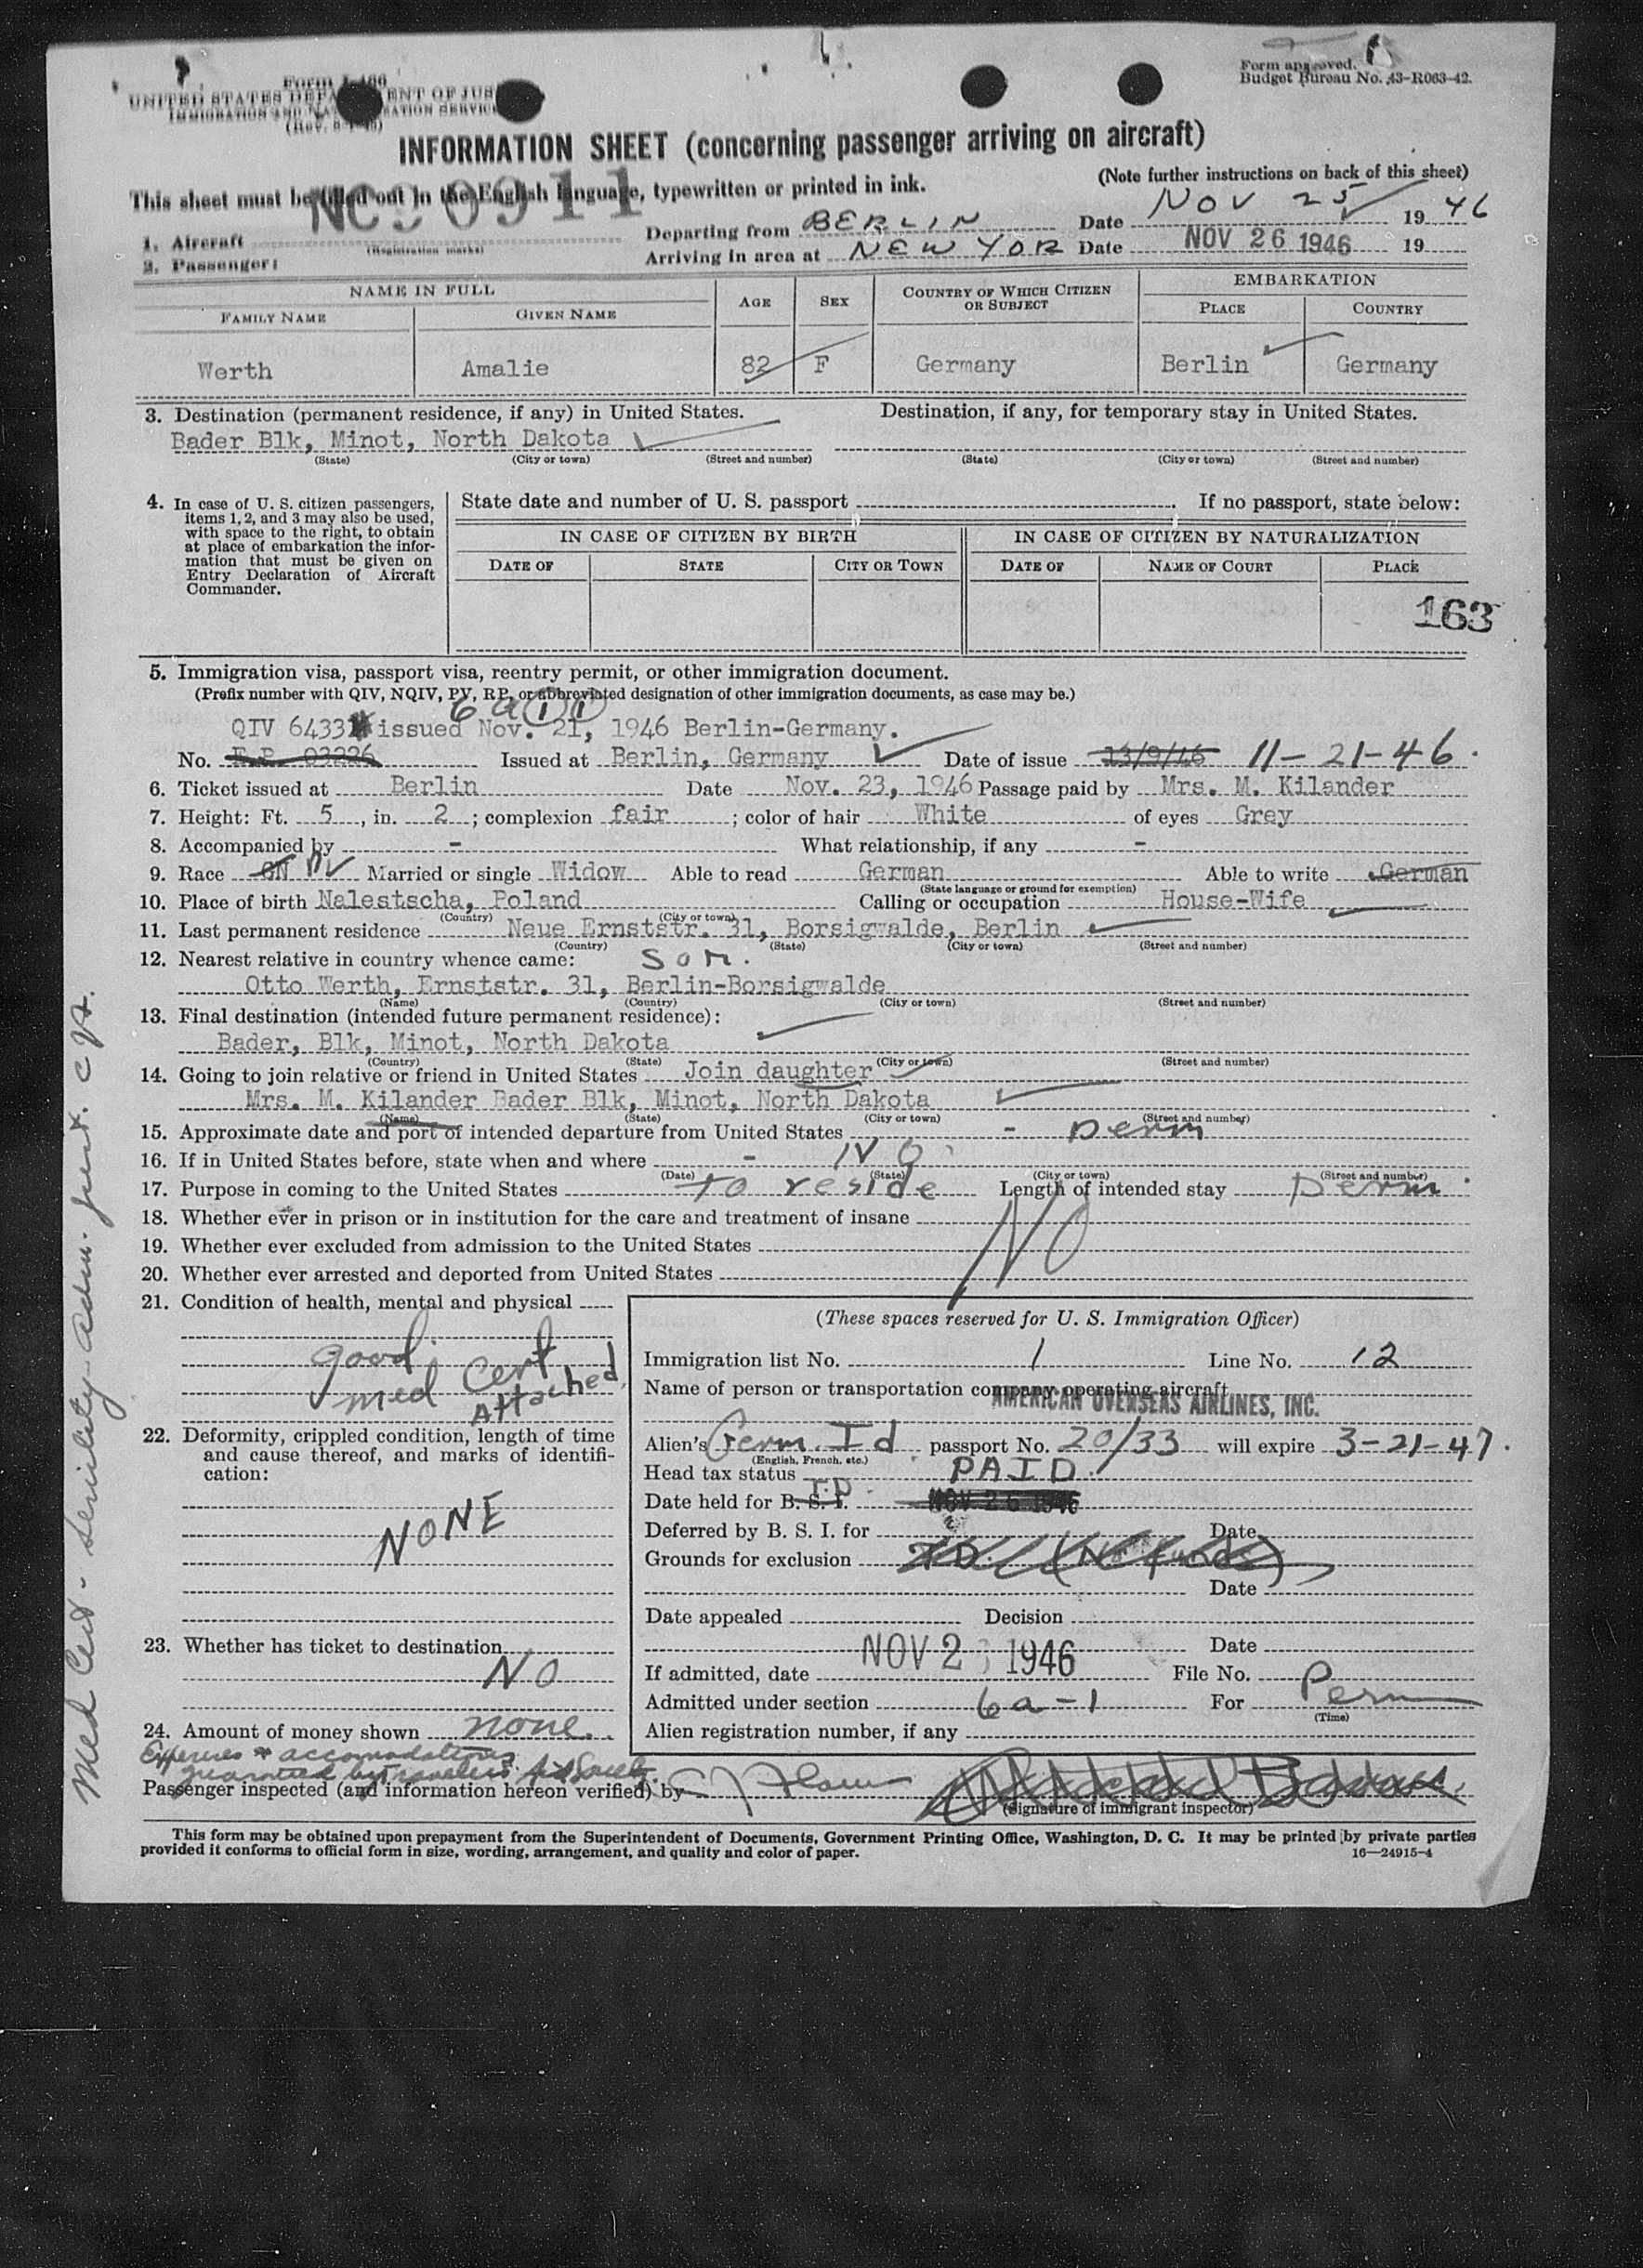 Form I-466
UNITED STATES DEPARTMENT OF JUSTICE
IMMIGRATION AND NATURALIZATION SERVICE
Form approved.
Budget Bureau No. 43-R063-42.
INFORMATION SHEET (concerning passenger arriving on aircraft)
This sheet must be filled out in the English language, typewritten or printed in ink.
(Note further instructions on back of this sheet)
1. Aircraft NC90911 (Registration marks) Departing from BERLIN Date NOV 25 1946
2. Passenger: Arriving in area at NEW YOR Date NOV 26 1946 19
NAME IN FULL AGE SEX COUNTRY OF WHICH CITIZEN OR SUBJECT EMBARKATION
FAMILY NAME GIVEN NAME PLACE COUNTRY
Werth Amalie 82 F Germany Berlin Germany
3. Destination (permanent residence, if any) in United States. Destination, if any, for temporary stay in United States.
Bader Blk, Minot, North Dakota
(State) (City or town) (Street and number) (State) (City or town) (Street and number)
4. In case of U. S. citizen passengers, items 1, 2, and 3 may also be used, with space to the right, to obtain at place of embarkation the information that must be given on Entry Declaration of Aircraft Commander.
State date and number of U. S. passport . If no passport, state below:
IN CASE OF CITIZEN BY BIRTH IN CASE OF CITIZEN BY NATURALIZATION
DATE OF STATE CITY OR TOWN DATE OF NAME OF COURT PLACE
163
5. Immigration visa, passport visa, reentry permit, or other immigration document.
(Prefix number with QIV, NQIV, PV, RP, or abbreviated designation of other immigration documents, as case may be.)
6 a 1 1
QIV 6433 issued Nov. 21, 1946 Berlin-Germany.
No. E.P. 03226 Issued at Berlin, Germany Date of issue 13/9/46 11-21-46.
6. Ticket issued at Berlin Date Nov. 23, 1946 Passage paid by Mrs. M. Kilander
7. Height: Ft. 5, in. 2; complexion fair; color of hair White of eyes Grey
8. Accompanied by - What relationship, if any -
9. Race Married or single Widow Able to read German Able to write German
(State language or ground for exemption)
10. Place of birth Nalestscha, Poland Calling or occupation House-Wife
(Country) (City or town)
11. Last permanent residence Neue Ernststr. 31, Borsigwalde, Berlin
(Country) (State) (City or town) (Street and number)
12. Nearest relative in country whence came: Son.
Otto Werth, Ernststr. 31, Berlin-Borsigwalde
(Name) (Country) (City or town) (Street and number)
13. Final destination (intended future permanent residence):
Bader, Blk, Minot, North Dakota
(Country) (State) (City or town) (Street and number)
14. Going to join relative or friend in United States Join daughter
Mrs. M. Kilander Bader Blk, Minot, North Dakota
(Name) (State) (City or town) (Street and number)
15. Approximate date and port of intended departure from United States - Perm
16. If in United States before, state when and where - No
(Date) (State) (City or town) (Street and number)
17. Purpose in coming to the United States to reside Length of intended stay Perm.
18. Whether ever in prison or in institution for the care and treatment of insane
19. Whether ever excluded from admission to the United States No
20. Whether ever arrested and deported from United States
21. Condition of health, mental and physical
good.
med Cert Attached
22. Deformity, crippled condition, length of time and cause thereof, and marks of identification:
NONE
23. Whether has ticket to destination
NO
24. Amount of money shown none.
(These spaces reserved for U. S. Immigration Officer)
Immigration list No. 1 Line No. 12
Name of person or transportation company operating aircraft
AMERICAN OVERSEAS AIRLINES, INC.
Alien's Germ. Id passport No. 20/33 will expire 3-21-47.
(English, French, etc.)
Head tax status PAID.
Date held for B. S. I. T.D. NOV 26 1946
Deferred by B. S. I. for Date
Grounds for exclusion T.D. (No funds)
Date
Date appealed Decision
Date
If admitted, date NOV 2 1946 File No.
Admitted under section 6a-1 For Perm
(Time)
Alien registration number, if any
Expenses & accomodations guaranteed by travelers aid Society.
Passenger inspected (and information hereon verified) by
(Signature of immigrant inspector)
This form may be obtained upon prepayment from the Superintendent of Documents, Government Printing Office, Washington, D. C. It may be printed by private parties
provided it conforms to official form in size, wording, arrangement, and quality and color of paper.
16—24915-4
Med Cert - Senility - Adm.